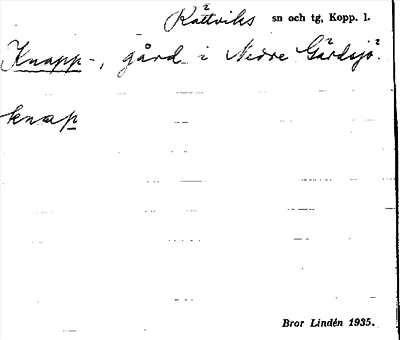 Rättviks sn och tg, Kopp. l.
Knapp-, gård i Nedre Gärdsjö.
knap
Bror Lindén 1935.